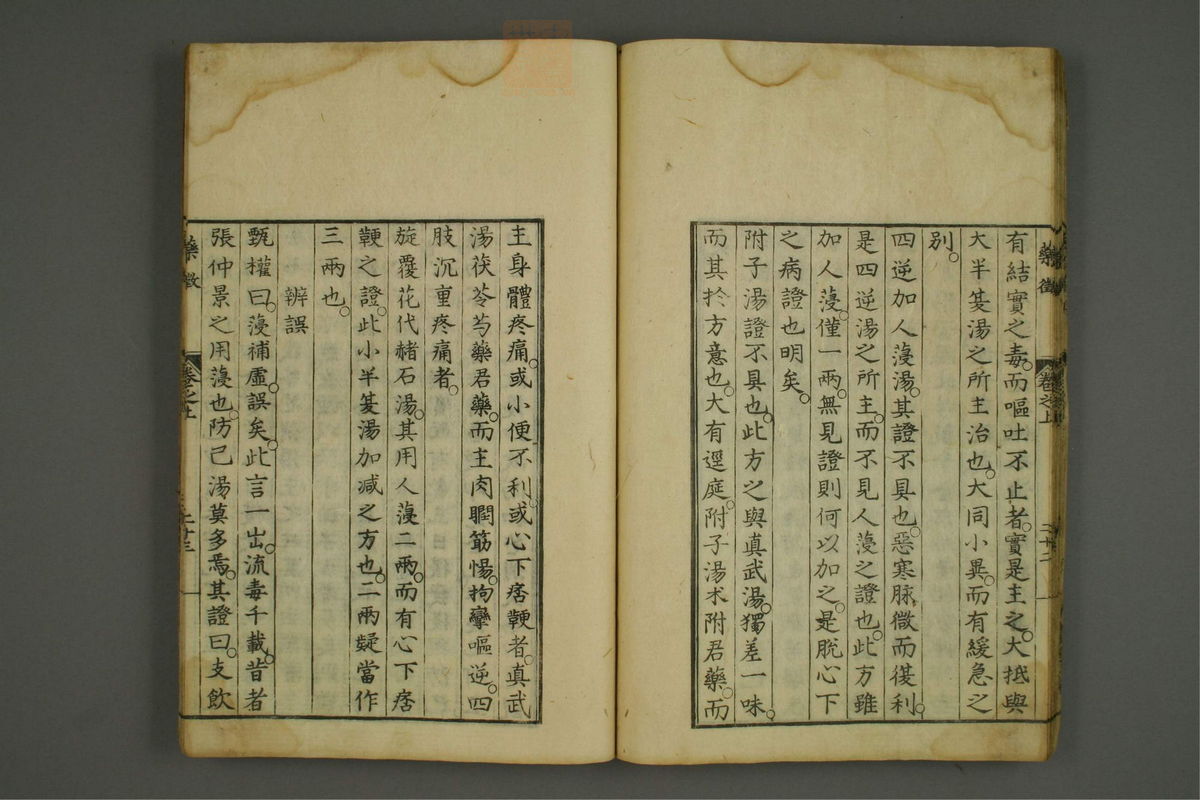 藥徵
卷之上
二十二
有結實之毒。而嘔吐不止者。實是主之。大抵與
大半夏湯之所主治也。大同小異。而有緩急之
別。
四逆加人蓡湯。其證不具也。惡寒脉微而復利。
是四逆湯之所主。而不見人蓡之證也。此方雖
加人蓡僅一兩。無見證則何以加之。是脫心下
之病證也明矣。
附子湯證不具也。此方之與真武湯。獨差一味。
而其於方意也。大有逕庭。附子湯朮附君藥。而
主身體疼痛。或小便不利。或心下痞鞕者。真武
湯茯苓芍藥君藥。而主肉瞤筋惕。拘攣嘔逆。四
肢沉重疼痛者。
旋覆花代赭石湯。其用人蓡二兩。而有心下痞
鞕之證。此小半夏湯加減之方也。二兩疑當作
三兩也。
辨誤
甄權曰。蓡補虛。誤矣。此言一出。流毒千載。昔者
張仲景之用蓡也。防己湯莫多焉。其證曰。支飲
藥徵
卷之上
二十三